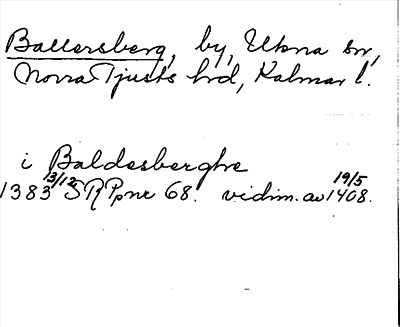 Ballersberg, by, Ukna sn,
Norra Tjusts hrd, Kalmar l.
i Baldesberghe
1383 13/12 SRPpnr 68. vidim. av 19/5 1408.